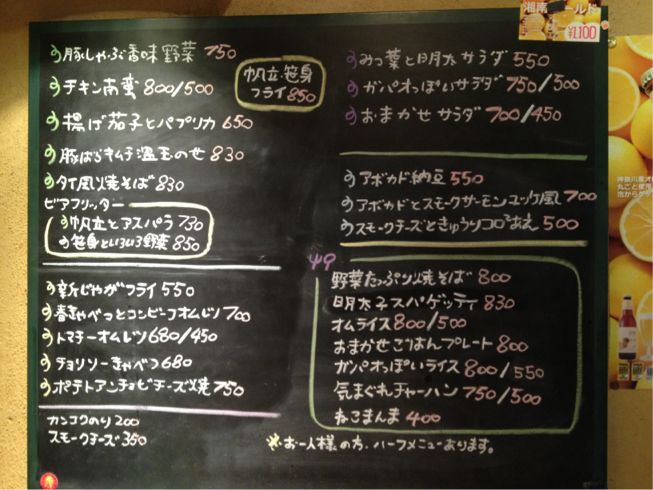 豚しゃぶ香味野菜 750
チキン南蛮 800/500
帆立、笹身
フライ 850
揚げ茄子とパプリカ 650
豚ばらキムチ温玉のせ 830
タイ風焼そば 830
ビアフリッター
帆立とアスパラ 730
笹身といろいろ野菜 850
新じゃがフライ 550
春きゃべつとコンビーフオムレツ 700
トマチーオムレツ 680/450
チョリソーきゃべつ 680
ポテトアンチョビチーズ焼 750
カンコクのり 200
スモークチーズ 350
みつ葉と明太サラダ 550
ガパオっぽいサラダ 750/500
おまかせサラダ 700/450
アボカド納豆 550
アボカドとスモークサーモンユッケ風 700
スモークチーズときゅうりコロコロあえ 500
野菜たっぷり焼そば 800
明太子スパゲッティ 830
オムライス 800/500
おまかせごはんプレート 800
ガパオっぽいライス 800/550
気まぐれチャーハン 750/500
ねこまんま 400
※お一人様の方、ハーフメニューあります。
湘南 ールド
¥1,100